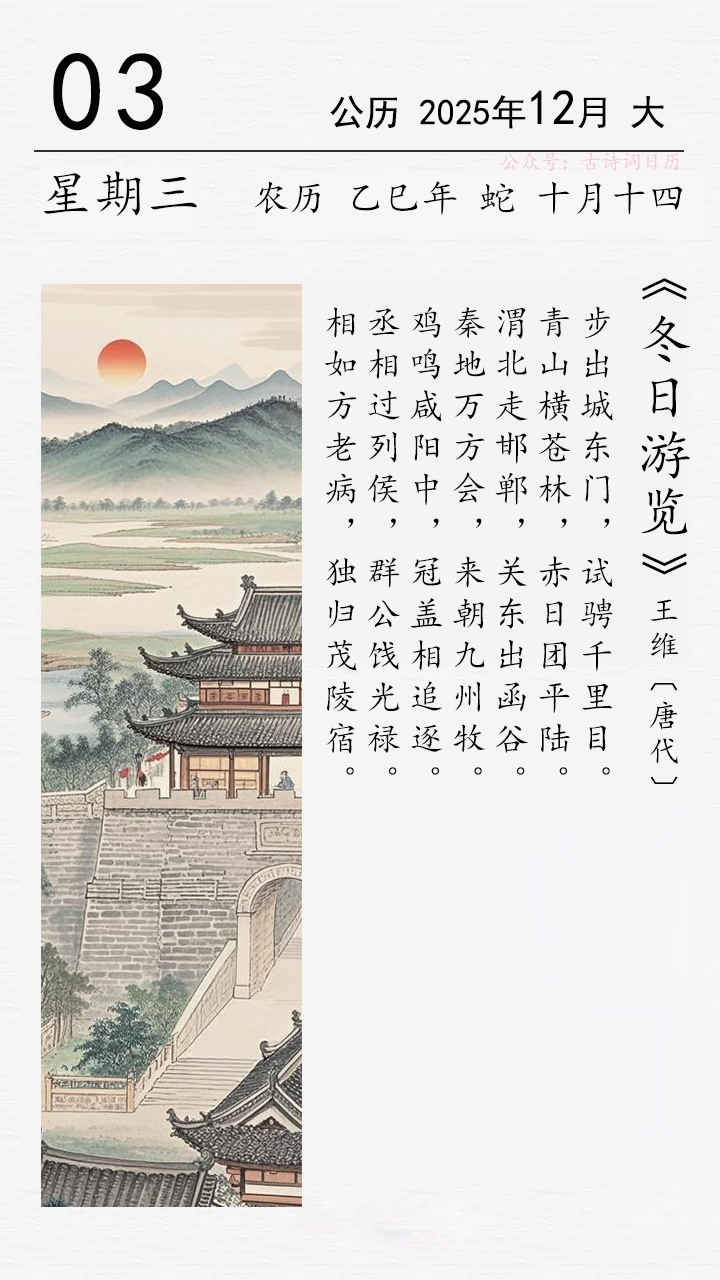 03
公历 2025年12月 大
公众号：古诗词日历
星期三 农历 乙巳年 蛇 十月十四
《冬日游览》
王维〔唐代〕
步出城东门，试骋千里目。
青山横苍林，赤日团平陆。
渭北走邯郸，关东出函谷。
秦地万方会，来朝九州牧。
鸡鸣咸阳中，冠盖相追逐。
丞相过列侯，群公饯光禄。
相如方老病，独归茂陵宿。